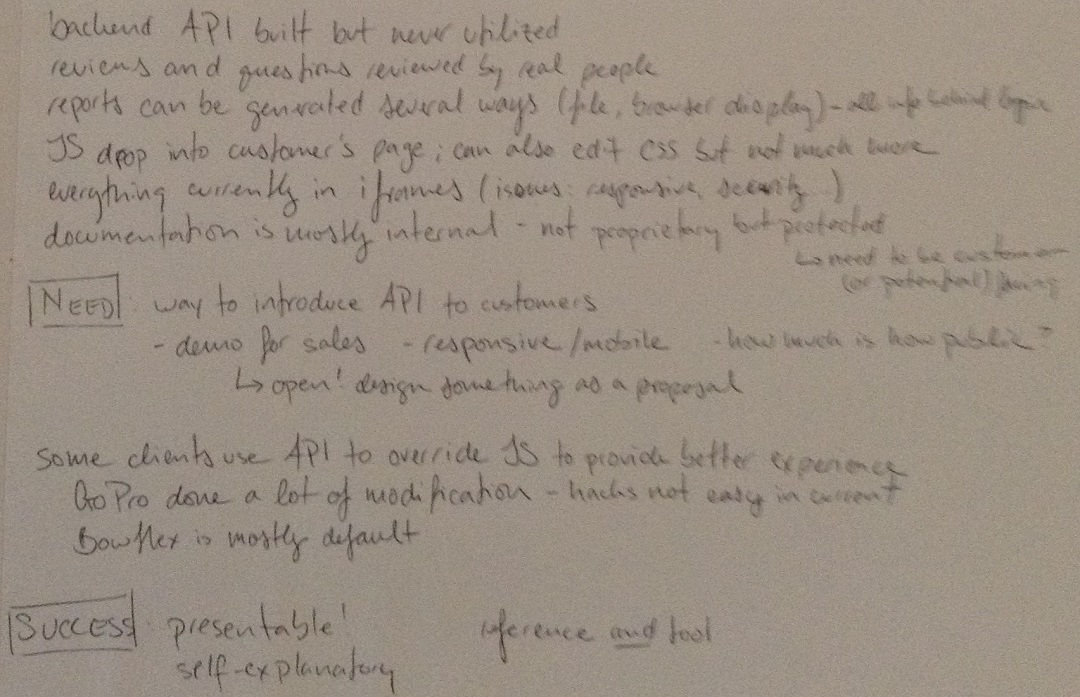 backend API built but never utilized
reviews and questions reviewed by real people
reports can be generated several ways (file, browser display) - all info behind login
JS drop into customer's page; can also edit CSS but not much more
everything currently in iframes (issues: responsive, security)
documentation is mostly internal - not proprietary but protected
↳ need to be customer
(or potential)
NEED: way to introduce API to customers
- demo for sales - responsive/mobile - how much is how public?
↳ open! design something as a proposal
some clients use API to override JS to provide better experience
GoPro done a lot of modification - hacks not easy in current
Bowflex is mostly default
SUCCESS: presentable! reference and tool
self-explanatory